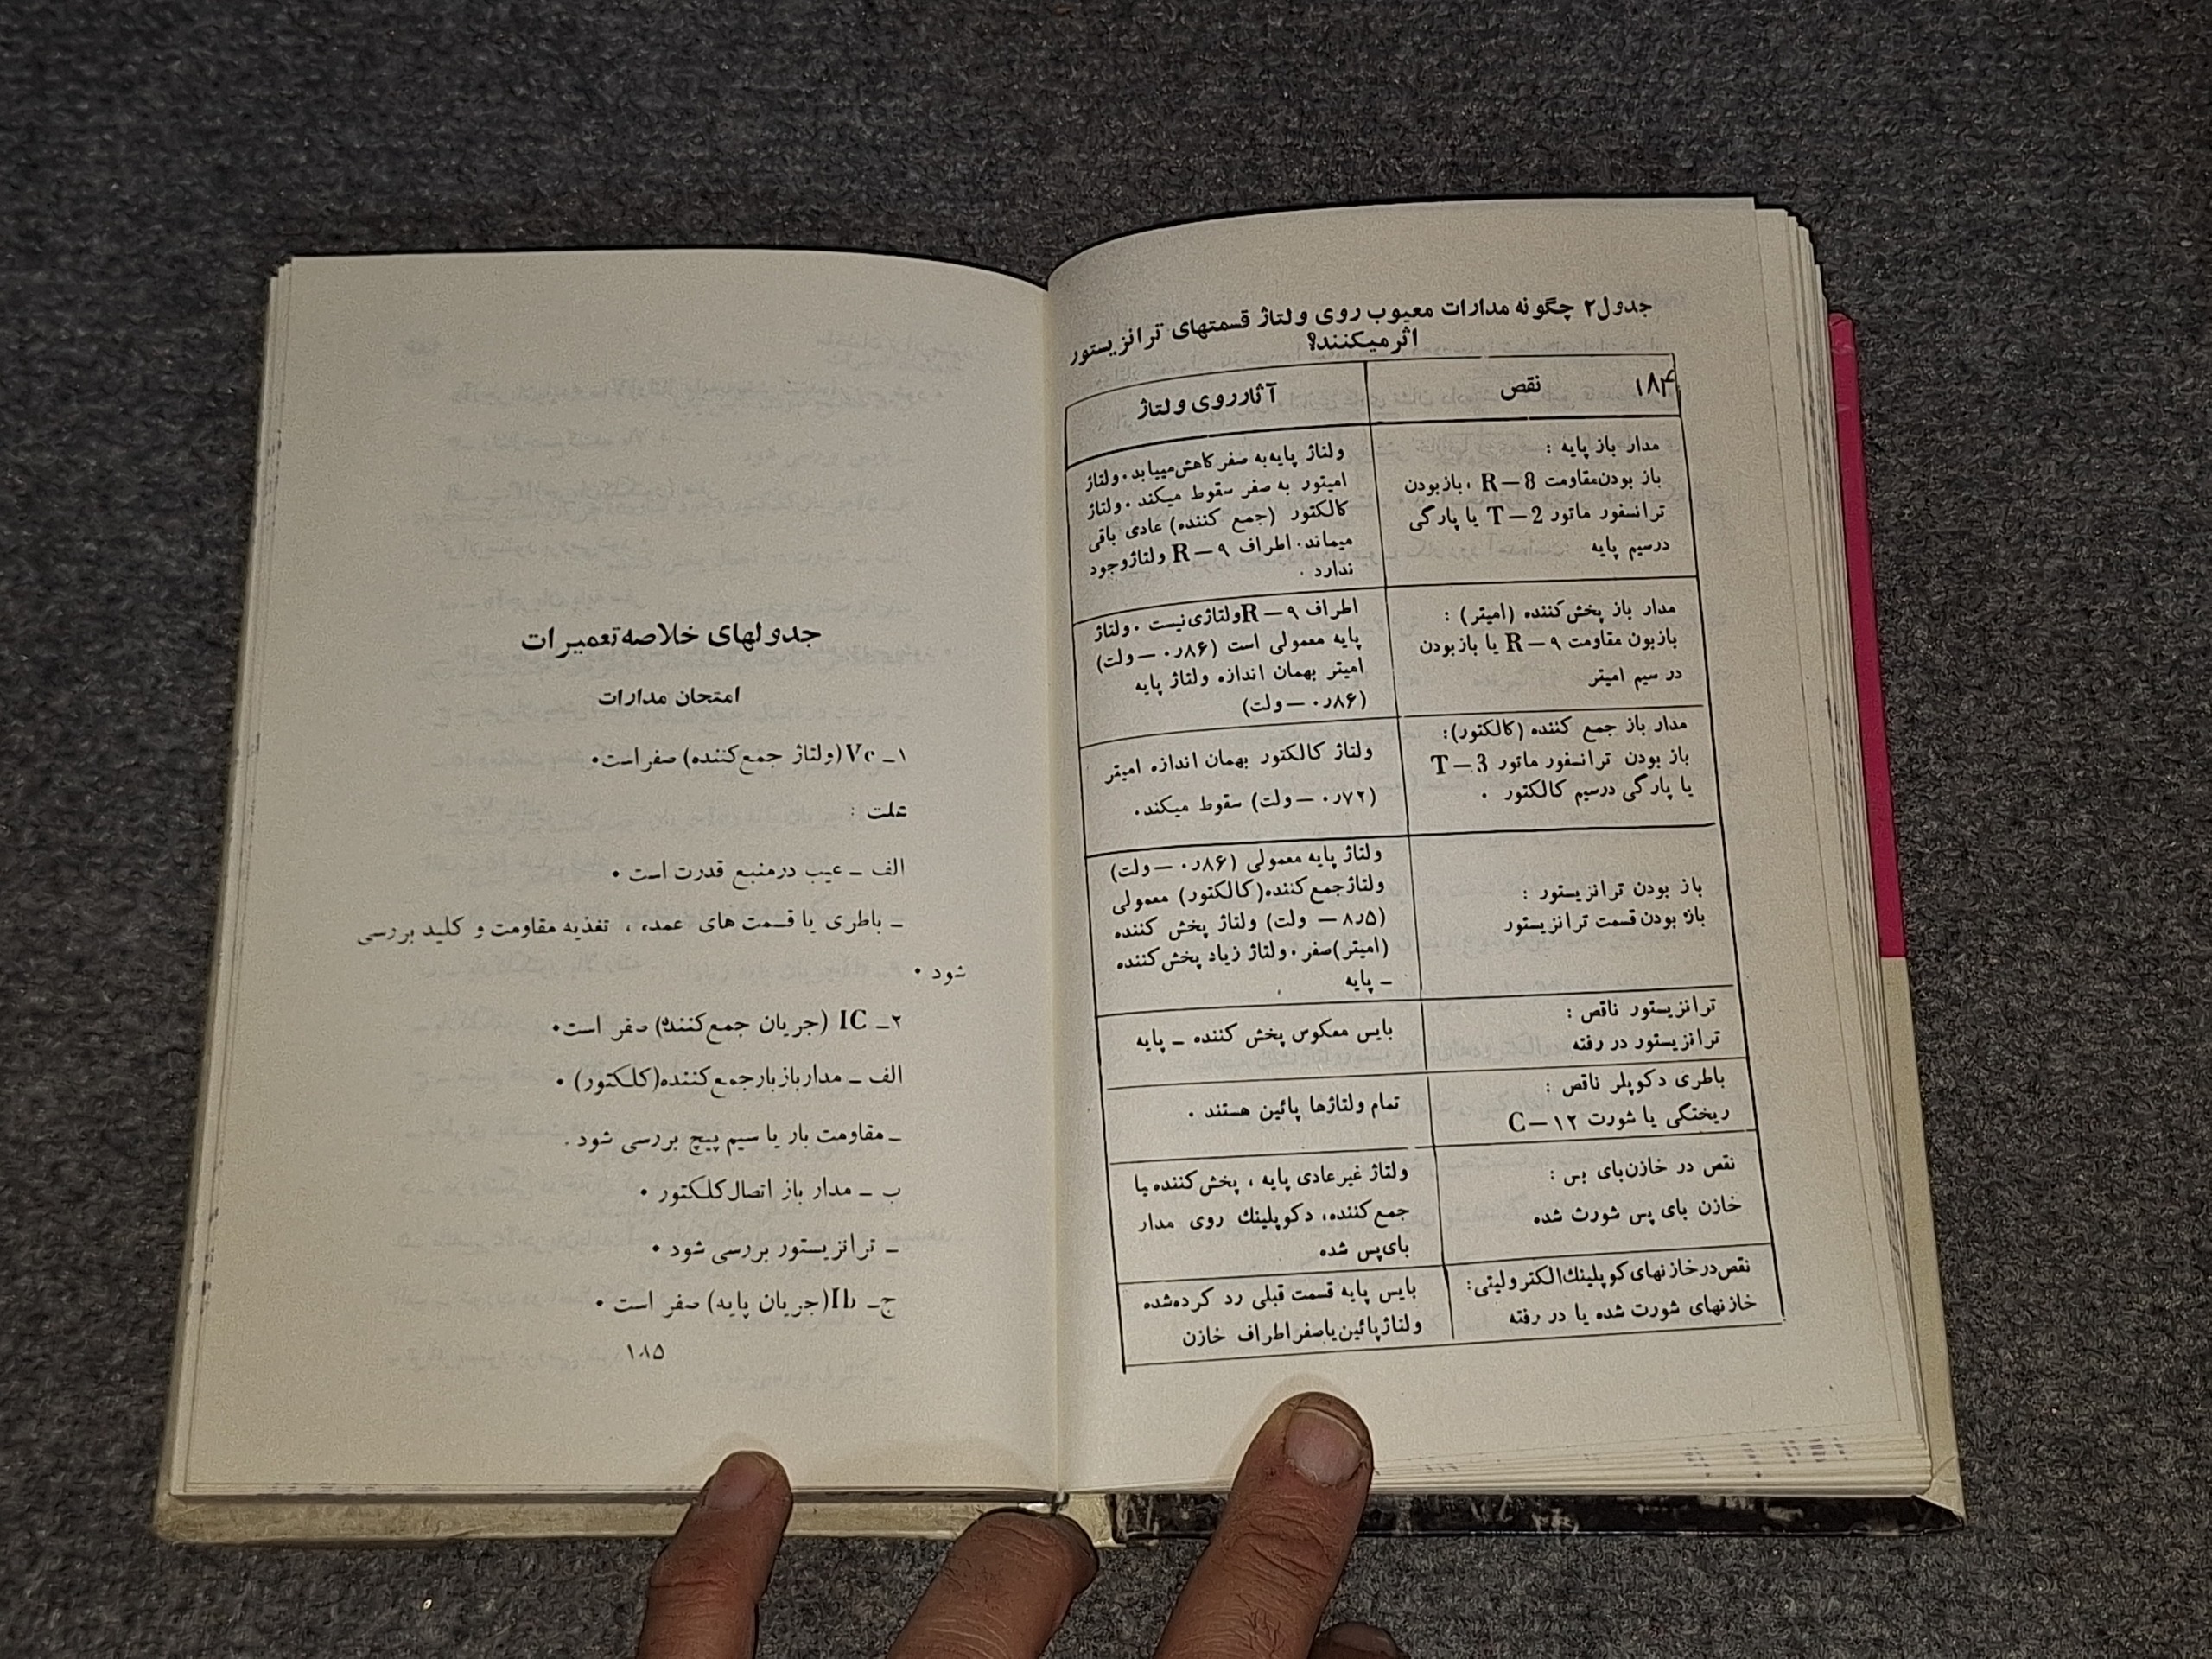 جدول۲ چگونه مدارات معیوب روی ولتاژ قسمتهای ترانزیستور
اثرمیکنند؟
۱۸۴
نقص
آثارروی ولتاژ
مدار باز پایه :
باز بودن‌مقاومت R – 8 ، بازبودن
ترانسفور ماتور T – 2 یا پارگی
درسیم پایه
ولتاژ پایه‌به صفر کاهش‌مییابد . ولتاژ
امیتور به صفر سقوط میکند . ولتاژ
کالکتور (جمع کننده) عادی باقی
میماند. اطراف R – ۹ ولتاژوجود
ندارد .
مدار باز پخش‌کننده (امیتر) :
بازبون مقاومت R – ۹ یا بازبودن
در سیم امیتر
اطراف R – ۹ولتاژی‌نیست . ولتاژ
پایه معمولی است (۰٫۸۶ – ولت)
امیتر بهمان اندازه ولتاژ پایه
(۰٫۸۶ – ولت)
مدار باز جمع کننده (کالکتور):
باز بودن ترانسفور ماتور T – 3
یا پارگی درسیم کالکتور .
ولتاژ کالکتور بهمان اندازه امیتر
(۰٫۷۲ – ولت) سقوط میکند.
باز بودن ترانزیستور :
باز بودن قسمت ترانزیستور
ولتاژ پایه معمولی (۰٫۸۶ – ولت)
ولتاژجمع‌کننده(کالکتور) معمولی
(۸٫۵ – ولت) ولتاژ پخش کننده
(امیتر)صفر . ولتاژ زیاد پخش‌کننده
– پایه
ترانزیستور ناقص :
ترانزیستور در رفته
بایس معکوس پخش کننده – پایه
باطری دکوپلر ناقص :
ریختگی یا شورت C – ۱۲
تمام ولتاژها پائین هستند .
نقص در خازن‌بای بس :
خازن بای پس شورت شده
ولتاژ غیرعادی پایه ، پخش‌کننده یا
جمع‌کننده، دکوپلینك روی مدار
بای‌پس شده
نقص‌درخازنهای‌کوپلینك‌الکترولیتی:
خازنهای شورت شده یا در رفته
بایس پایه قسمت قبلی رد کرده‌شده
ولتاژپائین‌یاصفراطراف خازن
جدولهای خلاصه‌تعمیرات
امتحان مدارات
۱– Vc (ولتاژ جمع‌کننده) صفراست.
علت :
الف – عیب درمنبع قدرت است .
– باطری یا قسمت های عمده ، تغذیه مقاومت و کلید بررسی
شود .
۲– IC (جریان جمع‌کننده) صفر است.
الف – مداربازبارجمع‌کننده(کلکتور) .
– مقاومت بار یا سیم پیچ بررسی شود .
ب – مدار باز اتصال‌کلکتور .
– ترانزیستور بررسی شود .
ج– Ib(جریان پایه) صفر است .
۱۸۵